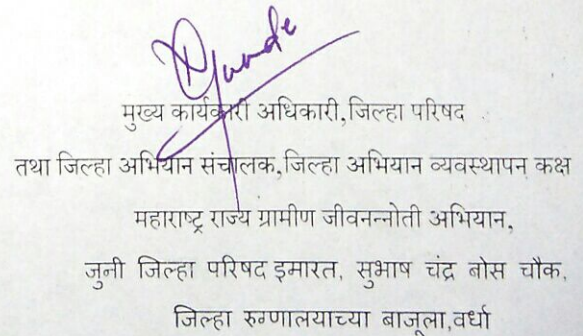 मुख्य कार्यकारी अधिकारी,जिल्हा परिषद
तथा जिल्हा अभियान संचालक,जिल्हा अभियान व्यवस्थापन कक्ष
महाराष्ट्र राज्य ग्रामीण जीवनन्नोती अभियान,
जुनी जिल्हा परिषद इमारत, सुभाष चंद्र बोस चौक,
जिल्हा रुग्णालयाच्या बाजूला,वर्धा